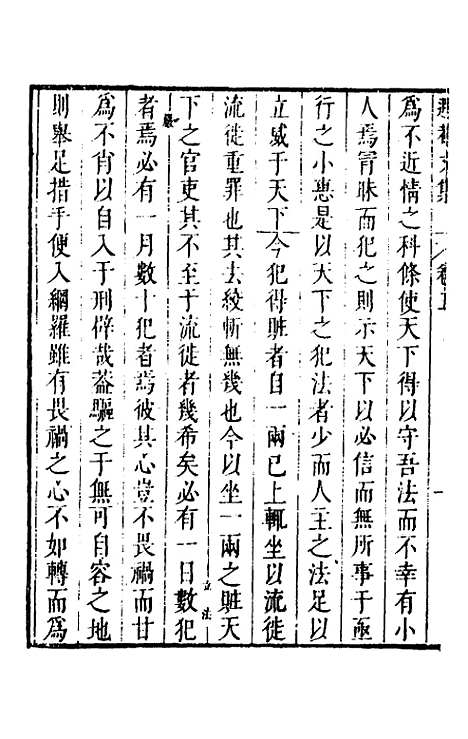 爲不近情之科條使天下得以守吾法而不幸有小
人焉冐昧而犯之則示天下以必信而無所事于亟
行之小惠是以天下之犯法者少而人主之法足以
立威于天下今犯得賍者自一兩已上輒坐以流徒
流徒重罪也其去絞斬無幾也今以坐一兩之賍天
下之官吏其不至于流徒者幾希矣必有一日數犯
立法
者焉必有一月數十犯者焉彼其心豈不畏禍而甘
爲不肖以自入于刑僇哉葢驅之于無可自容之地
則舉足措手便入綱羅雖有畏禍之心不如轉而爲